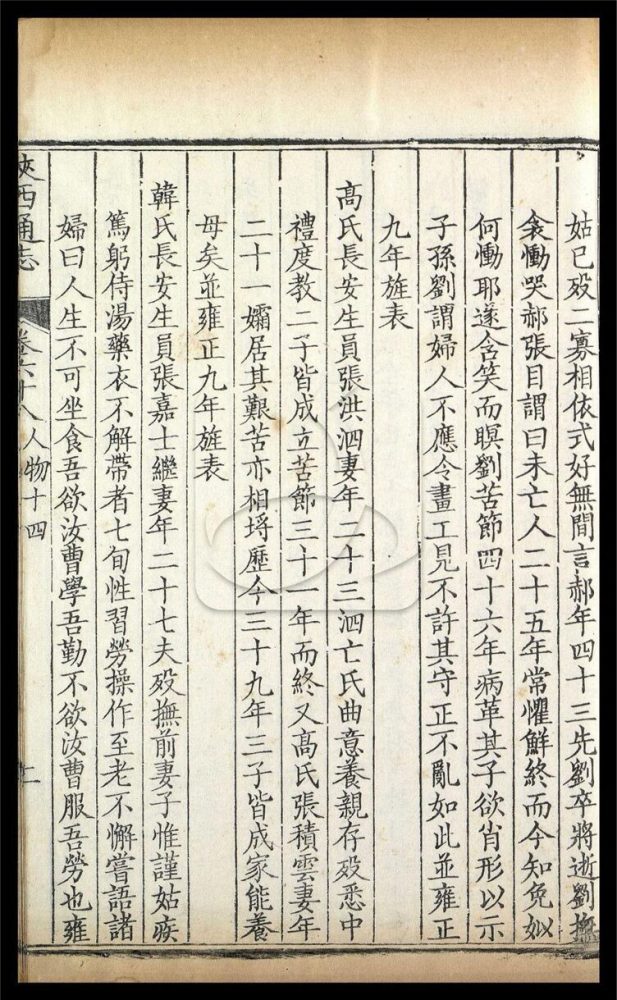 姑已歿二寡相依式好無間言郝年四十三先劉卒將逝劉撫
衾慟哭郝張目謂曰未亡人二十五年常懼鮮終而今知免姒
何慟耶遂含笑而瞑劉苦節四十六年病革其子欲肖形以示
子孫劉謂婦人不應令畫工見不許其守正不亂如此並雍正
九年旌表
高氏長安生員張洪泗妻年二十三泗亡氏曲意養親存歿悉中
禮度教二子皆成立苦節三十一年而終又高氏張積雲妻年
二十一孀居其艱苦亦相埒歷今三十九年三子皆成家能養
母矣並雍正九年旌表
韓氏長安生員張嘉士繼妻年二十七夫歿撫前妻子惟謹姑疾
篤躬侍湯藥衣不解帶者七旬性習勞操作至老不懈嘗語諸
婦曰人生不可坐食吾欲汝曹學吾勤不欲汝曹服吾勞也雍
陝西通志 卷六十八 人物十四